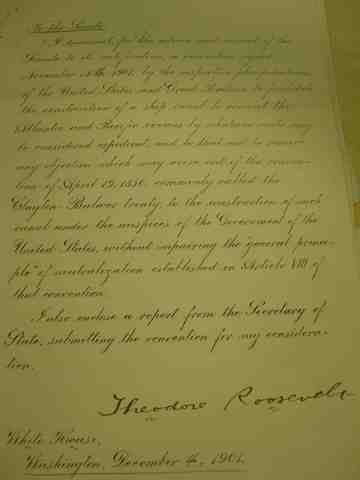 To the Senate:
I transmit, for the advice and consent of the
Senate to its ratification, a convention signed
November 18th, 1901, by the respective plenipotentiaries
of the United States and Great Britain, to facilitate
the construction of a ship canal to connect the
Atlantic and Pacific oceans by whatever route may
be considered expedient, and to that end to remove
any objection which may arise out of the conven-
tion of April 19, 1850, commonly called the
Clayton-Bulwer treaty, to the construction of such
canal under the auspices of the Government of the
United States, without impairing the "general princi-
ple" of neutralization established in Article VIII of
that convention.
I also enclose a report from the Secretary of
State, submitting the convention for my considera-
tion.
Theodore Roosevelt
White House,
Washington, December 4, 1901.